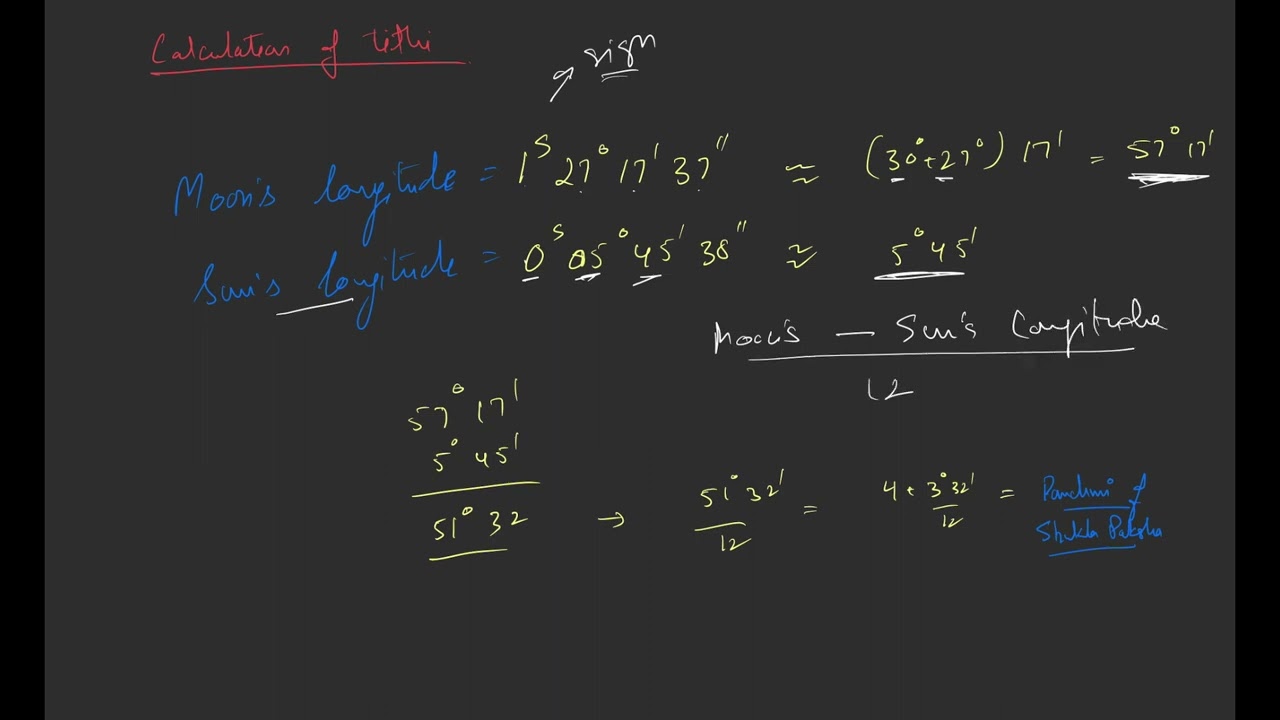 Calculation of tithi
sign
Moon's longitude = 1ˢ 27° 17' 37" ≈ (30°+27°) 17' = 57° 17'
Sun's longitude = 0ˢ 05° 45' 38" ≈ 5° 45'
Moon's — Sun's Longitude
12
57° 17'
5° 45'
51° 32 → 51° 32' / 12 = 4 + 3° 32' / 12 = Panchmi of
Shukla Paksha